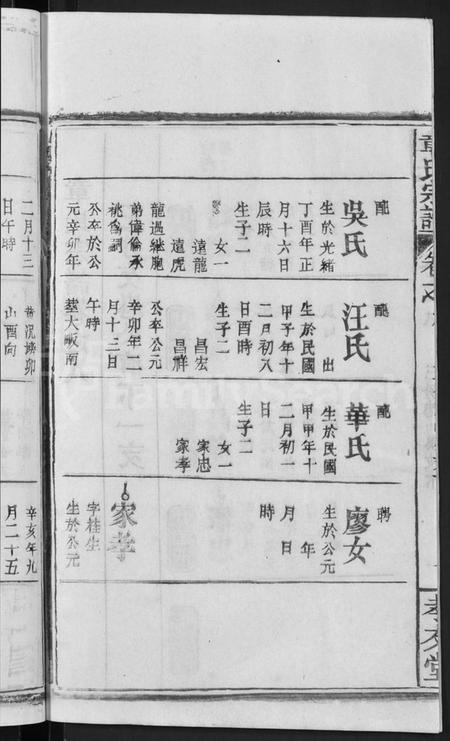 章氏宗譜
卷
孝友堂
配
吳氏
生於光緒
丁酉年正
月十六日
辰時
生子二
遠龍
遠虎
女一
龍過繼胞
弟偉倫承
祧為嗣
公卒於公
元辛卯年
配
汪氏
出
生於民國
甲子年十
二月初八
日酉時
生子二
昌宏
昌祥
公卒公元
辛卯年二
月十三日
午時
墓大畈南
配
華氏
生於民國
甲甲年十
二月初一
日
生子二
家忠
家孝
女一
聘
廖女
生於公元
年
月 日
時
家孝
字桂生
生於公元
二月十三
日午時
山酉向
辛亥年九
月二十五